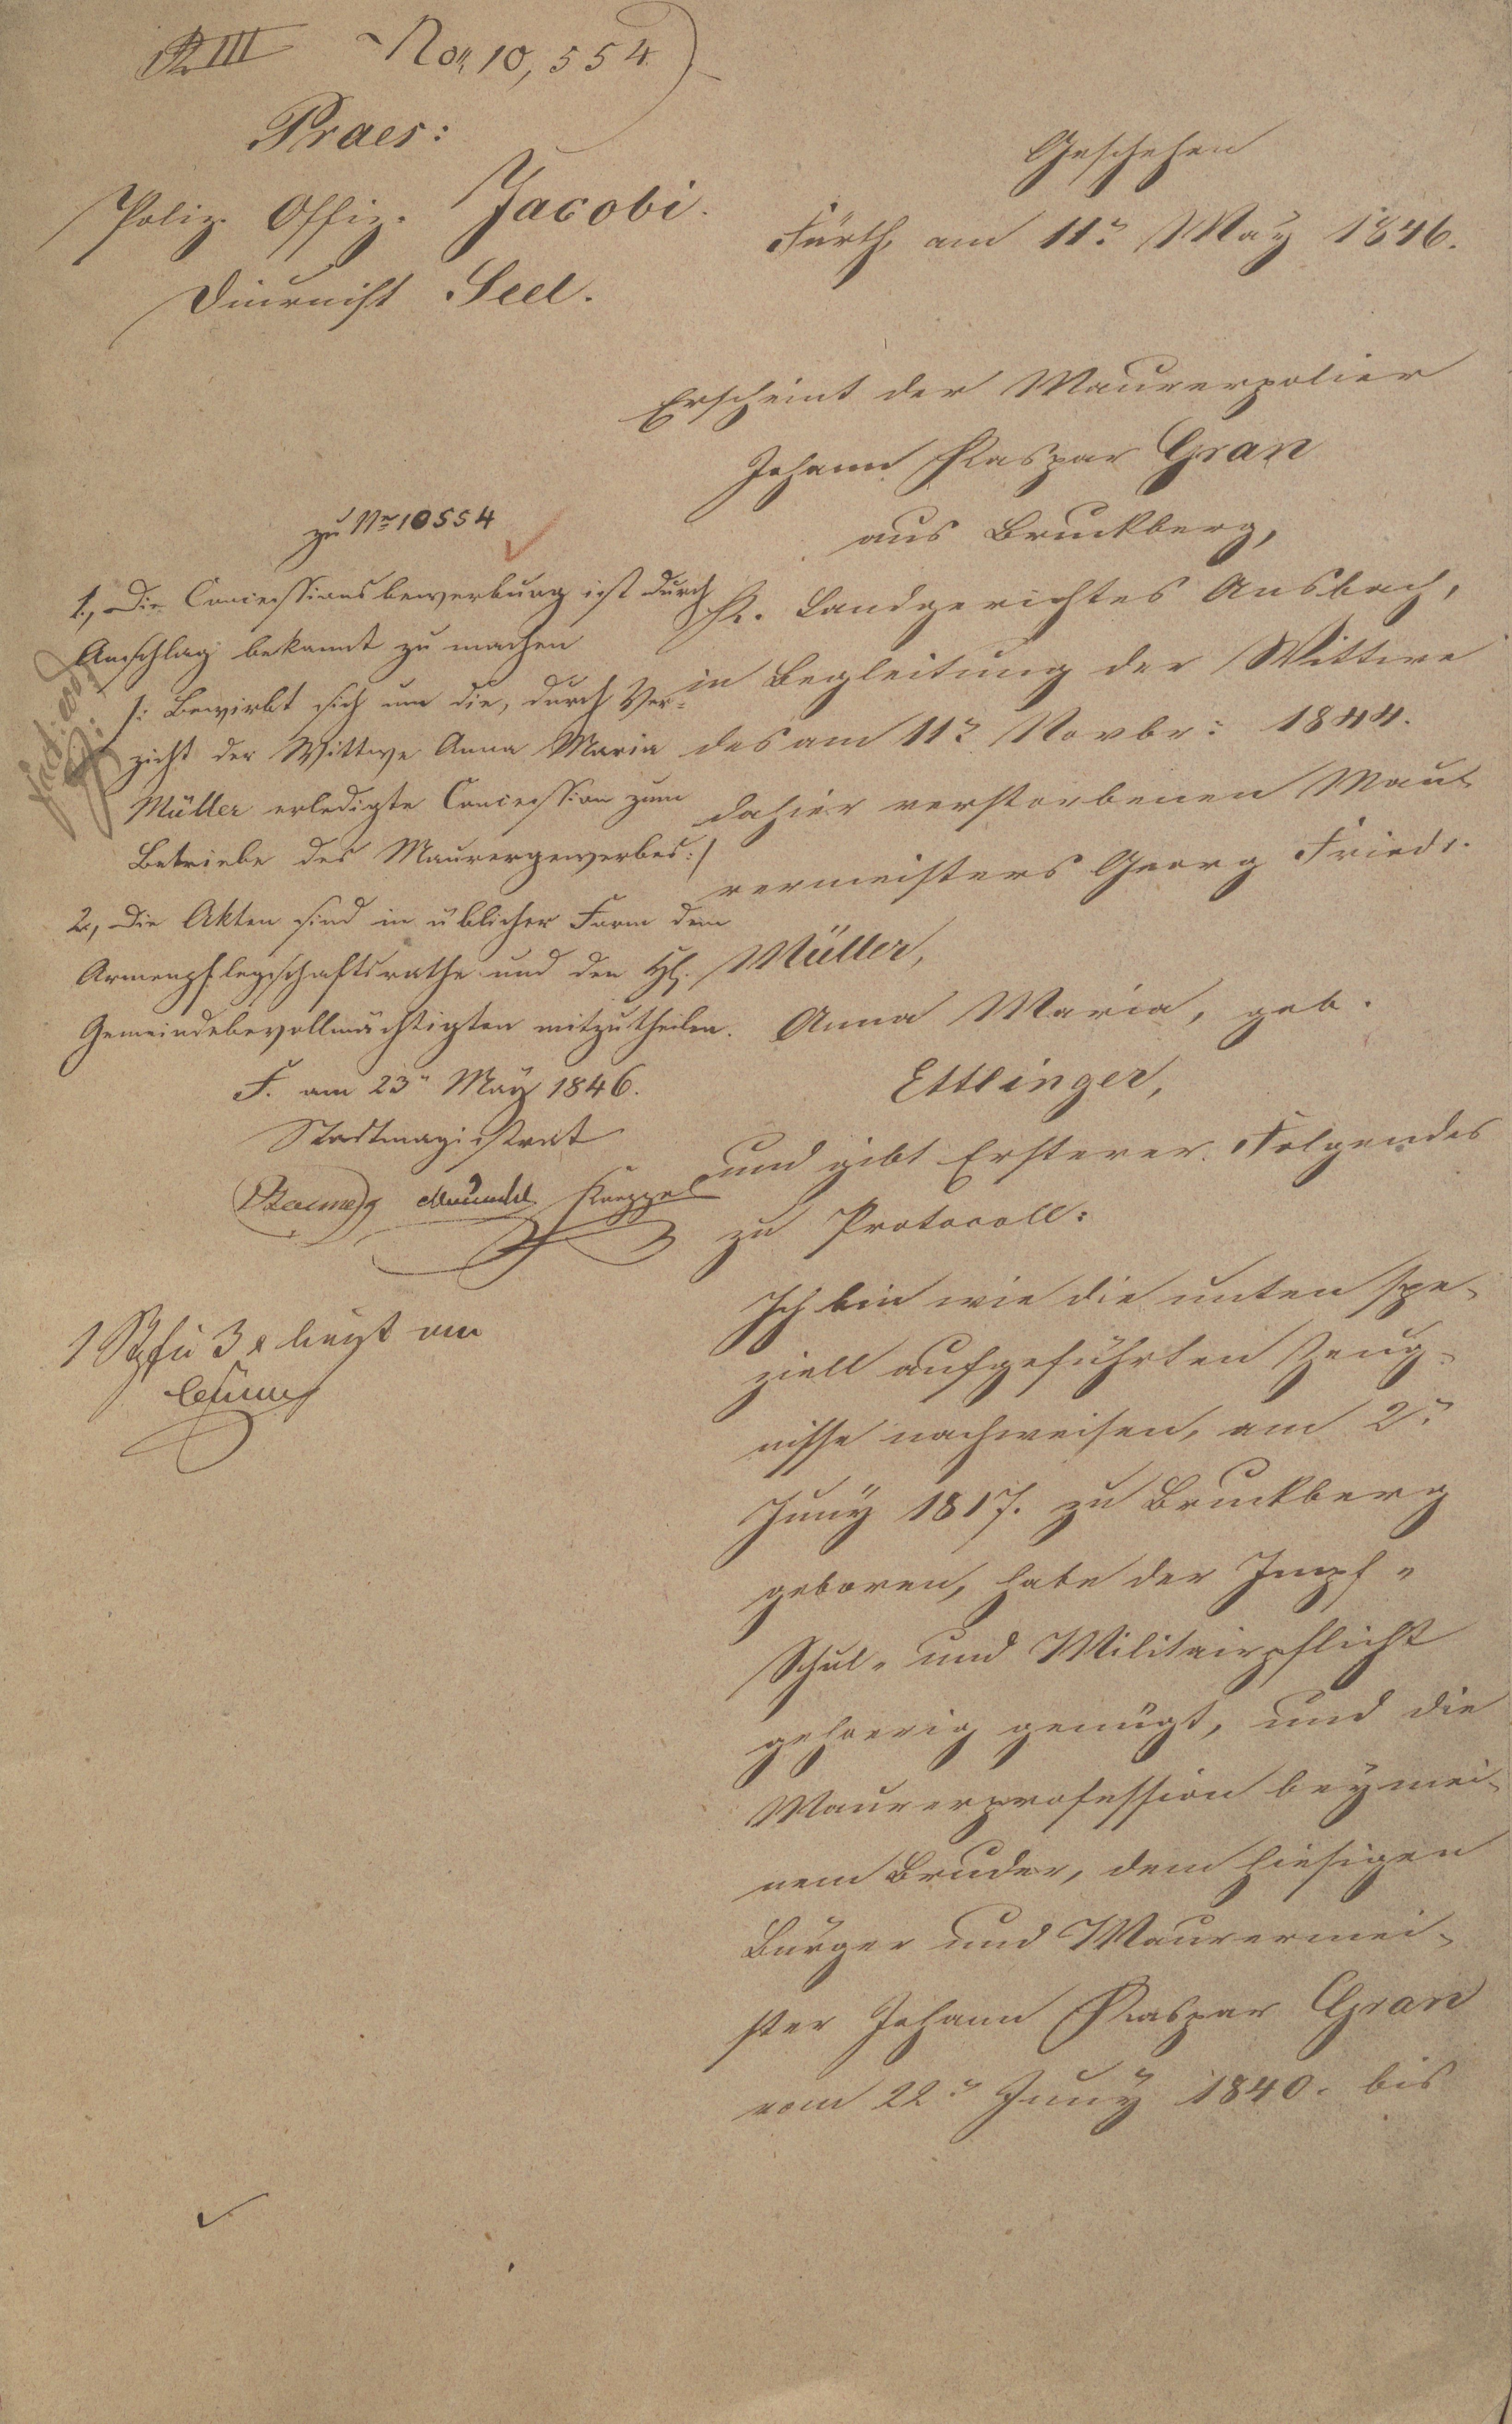 III No 10,554.
Praes:
Poliz. Offiz. Jacobi.
Diurnist Seel.
Geschehen
Fürth, am 11n May 1846.
Erscheint der Maurerpolier
Johann Kaspar Gran
aus Bruckberg,
K. Landgerichtes Ansbach,
in Begleitung der Wittwe
des am 11n Novbr: 1844.
dahier verstorbenen Mau-
rermeisters Georg Friedr.
Müller,
Anna Maria, geb.
Ettlinger,
und gibt Ersterer Folgendes
zu Protocoll:
Ich bin wie die unten spe-
ziell aufgeführten Zeug-
nisse nachweisen, am 2n
Juny 1817. zu Bruckberg
geboren, habe der Impf-
Schul- und Militairpflicht
gehoerig genügt, und die
Maurerprofession bey mei-
nem Bruder, dem hiesigen
Bürger und Maurermei-
ster Johann Kaspar Gran
vom 22n Juny 1840. bis
zu Nr 10554
1., Die Concessionsbewerbung ist durch
Anschlag bekannt zu machen
/: Bewirbt sich um die, durch Ver-
zicht der Wittwe Anna Maria
Müller erledigte Concession zum
Betriebe des Maurergewerbes :/
2., Die Akten sind in üblicher Form dem
Armenpflegschaftsrathe und den HH.
Gemeindebevollmächtigten mitzutheilen.
F. am 23n May 1846.
Stadtmagistrat
1 zu 3 x liegt an